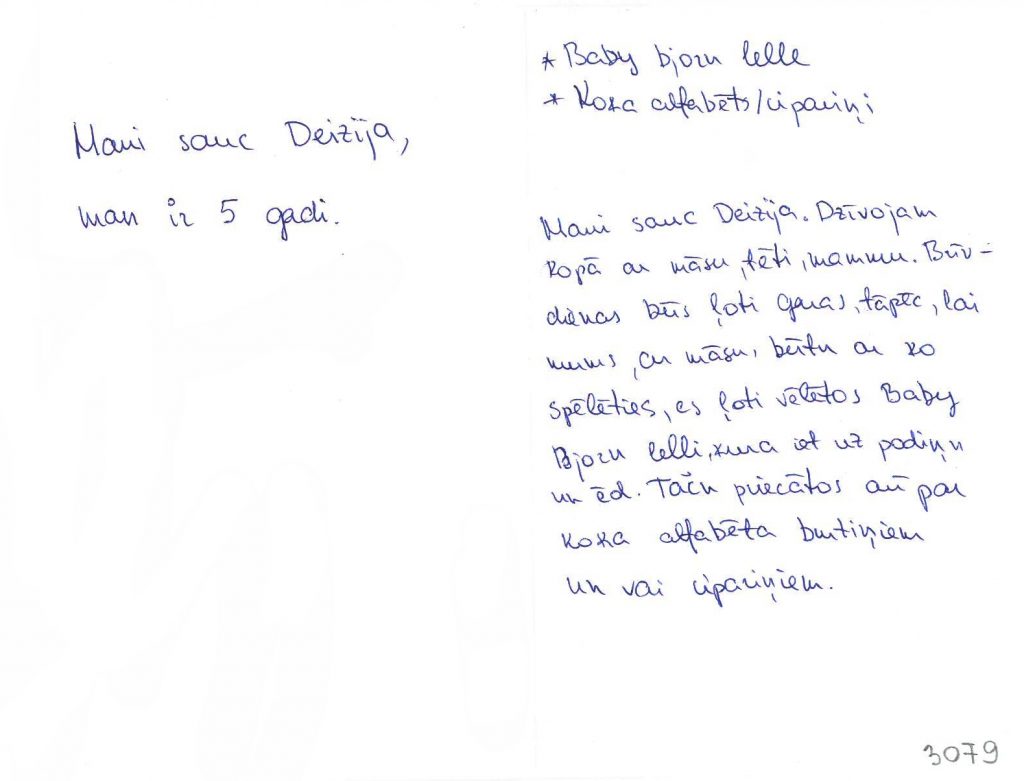 Mani sauc Deizija,
man ir 5 gadi.
* Baby bjorn lelle
* Koka alfabēts/cipariņi
Mani sauc Deizija. Dzīvojam
kopā ar māsu, tēti, mammu. Brīv-
dienas būs ļoti garas, tāpēc, lai
mums, ar māsu, būtu ar ko
spēlēties, es ļoti vēlētos Baby
Bjorn lelli, kura iet uz podiņu
un ēd. Taču priecātos arī par
koka alfabēta burtiņiem
un vai cipariņiem.
3079